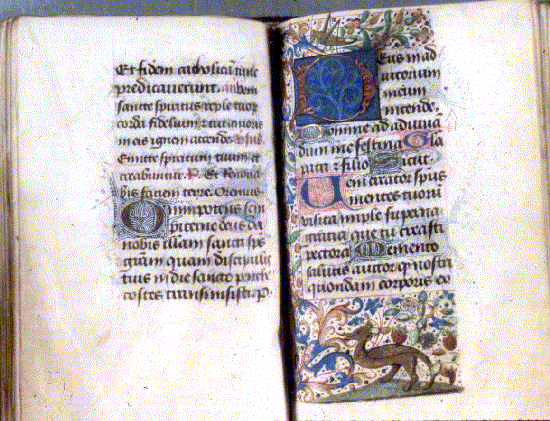 Et fidem catholicam tunc
predicaverunt.
sancte spiritus reple tuor
corda fidelium et tui amoris
in eis ignem accende.
Emitte spiritum tuum et
creabuntur. R. Et renova
bis faciem terre. Oremus
Omnipotens sem
piterne deus da
nobis illam sancti sps
gratiam quam discipulis
tuis in die sancto pente
costes transmisisti. p
Deus in ad
iutorium
meum
intende.
Domine ad adiuvan
dum me festina Glo
pater et filio Sicut
Veni creator spus
mentes tuorum
visita imple superna
gratia que tu creasti
pectora Memento
salutis auctor quod nostri
quondam corporis ex